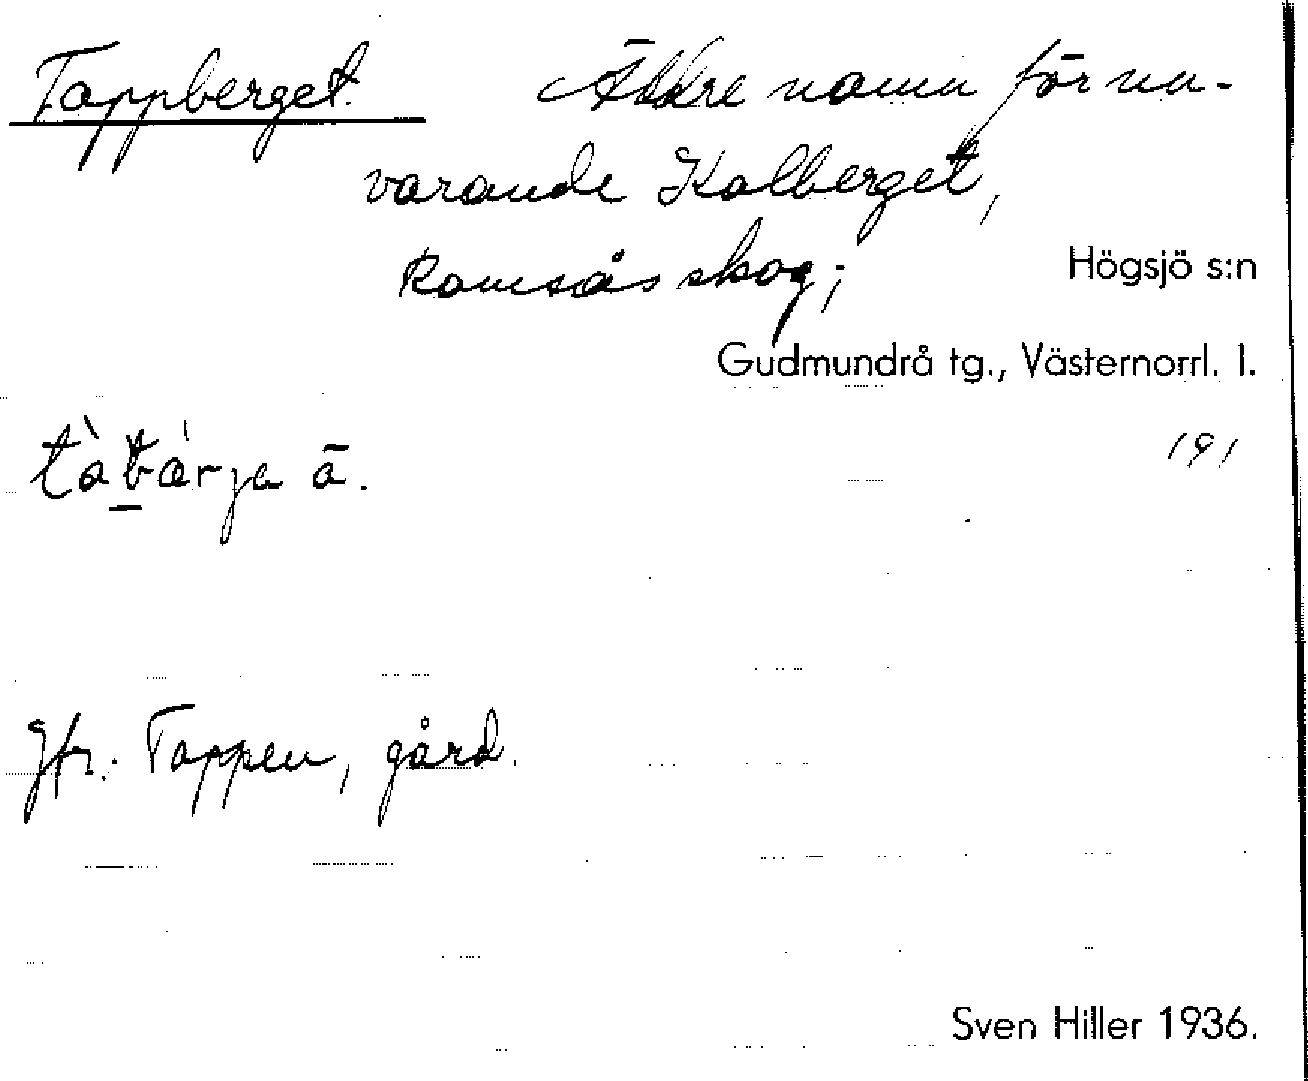 Tappberget. Äldre namn för nu-
varande Kolberget,
Ramsås skog;
Högsjö s:n
Gudmundrå tg., Västernorrl. l.
tàbárja ā.
191
Jfr. Tappen, gård.
Sven Hiller 1936.